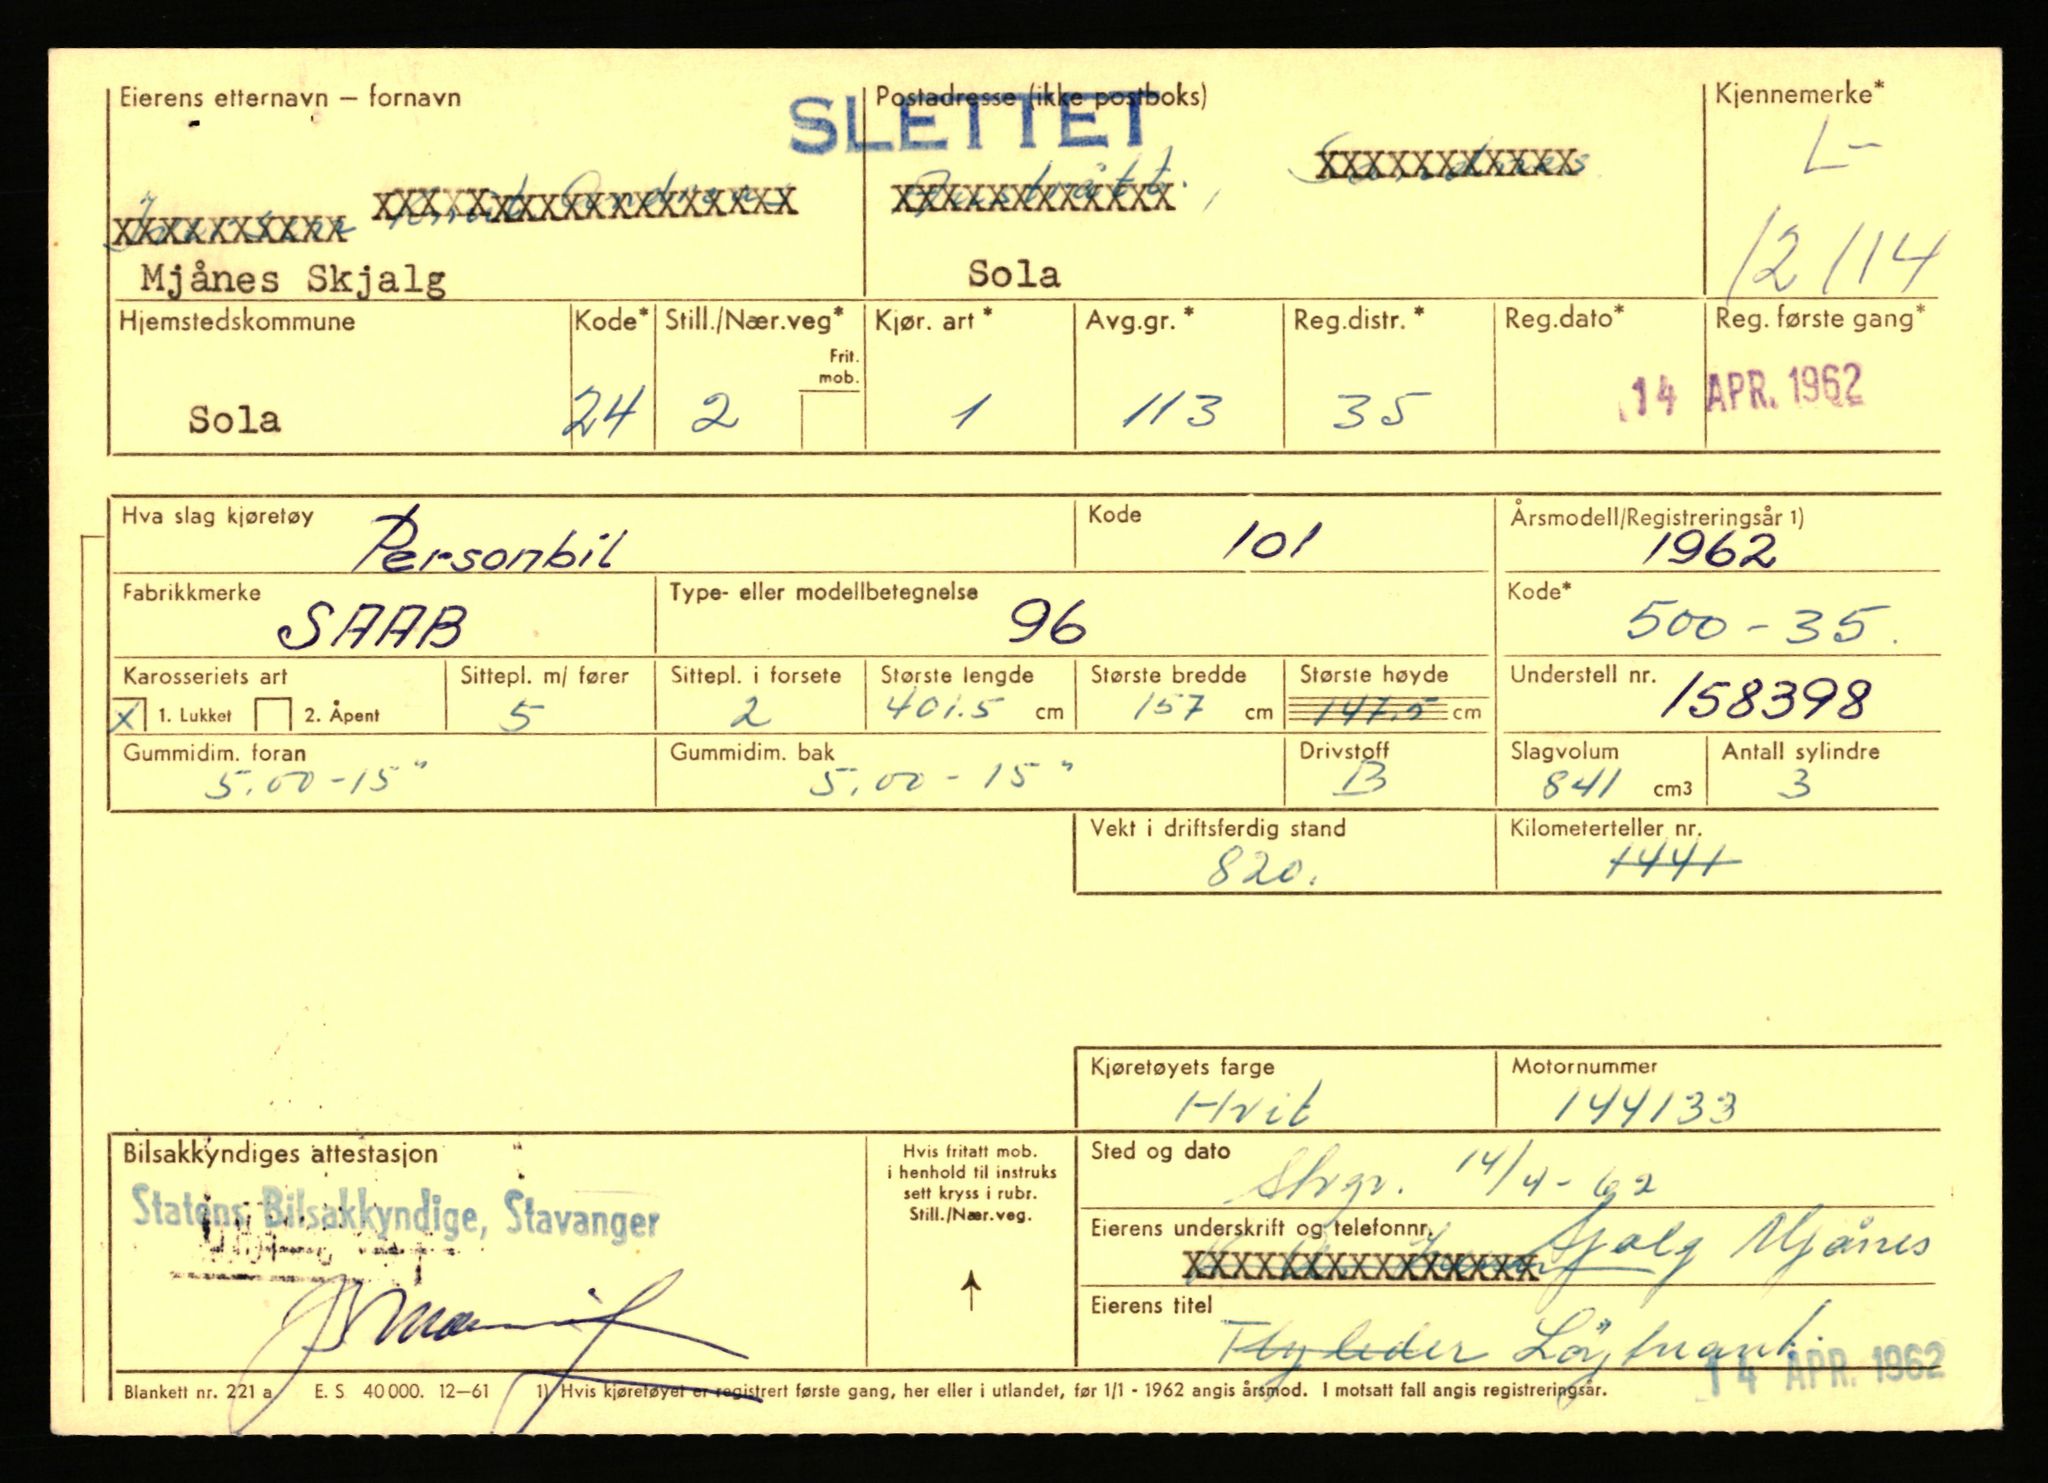 Eierens etternavn – fornavn
Postadresse (ikke postboks)
Kjennemerke*
SLETTET
L-
12114
Mjånes Skjalg
Sola
Hjemstedskommune Kode* Still./Nær.veg* Kjør. art * Avg.gr. * Reg.distr. * Reg.dato* Reg. første gang*
Frit.
mob.
Sola 24 2 1 113 35 14 APR. 1962
Hva slag kjøretøy Kode Årsmodell/Registreringsår 1)
Personbil 101 1962
Fabrikkmerke Type- eller modellbetegnelse Kode*
SAAB 96 500-35.
Karosseriets art Sittepl. m/ fører Sittepl. i forsete Største lengde Største bredde Største høyde Understell nr.
X 1. Lukket 2. Åpent 5 2 401.5 cm 157 cm 147.5 cm 158398
Gummidim. foran Gummidim. bak Drivstoff Slagvolum Antall sylindre
5.00-15" 5.00-15" B 841 cm3 3
Vekt i driftsferdig stand Kilometerteller nr.
820. 1441
Kjøretøyets farge Motornummer
Hvit 144133
Bilsakkyndiges attestasjon
Statens Bilsakkyndige, Stavanger
Hvis fritatt mob.
i henhold til instruks
sett kryss i rubr.
Still./Nær.veg.
↑
Sted og dato
Stvgr. 14/4-62
Eierens underskrift og telefonnr.
Mjånes
Eierens titel
Flyleder Löytnant.
14 APR. 1962
Blankett nr. 221 a E. S 40 000. 12–61 1) Hvis kjøretøyet er registrert første gang, her eller i utlandet, før 1/1 - 1962 angis årsmod. I motsatt fall angis registreringsår.